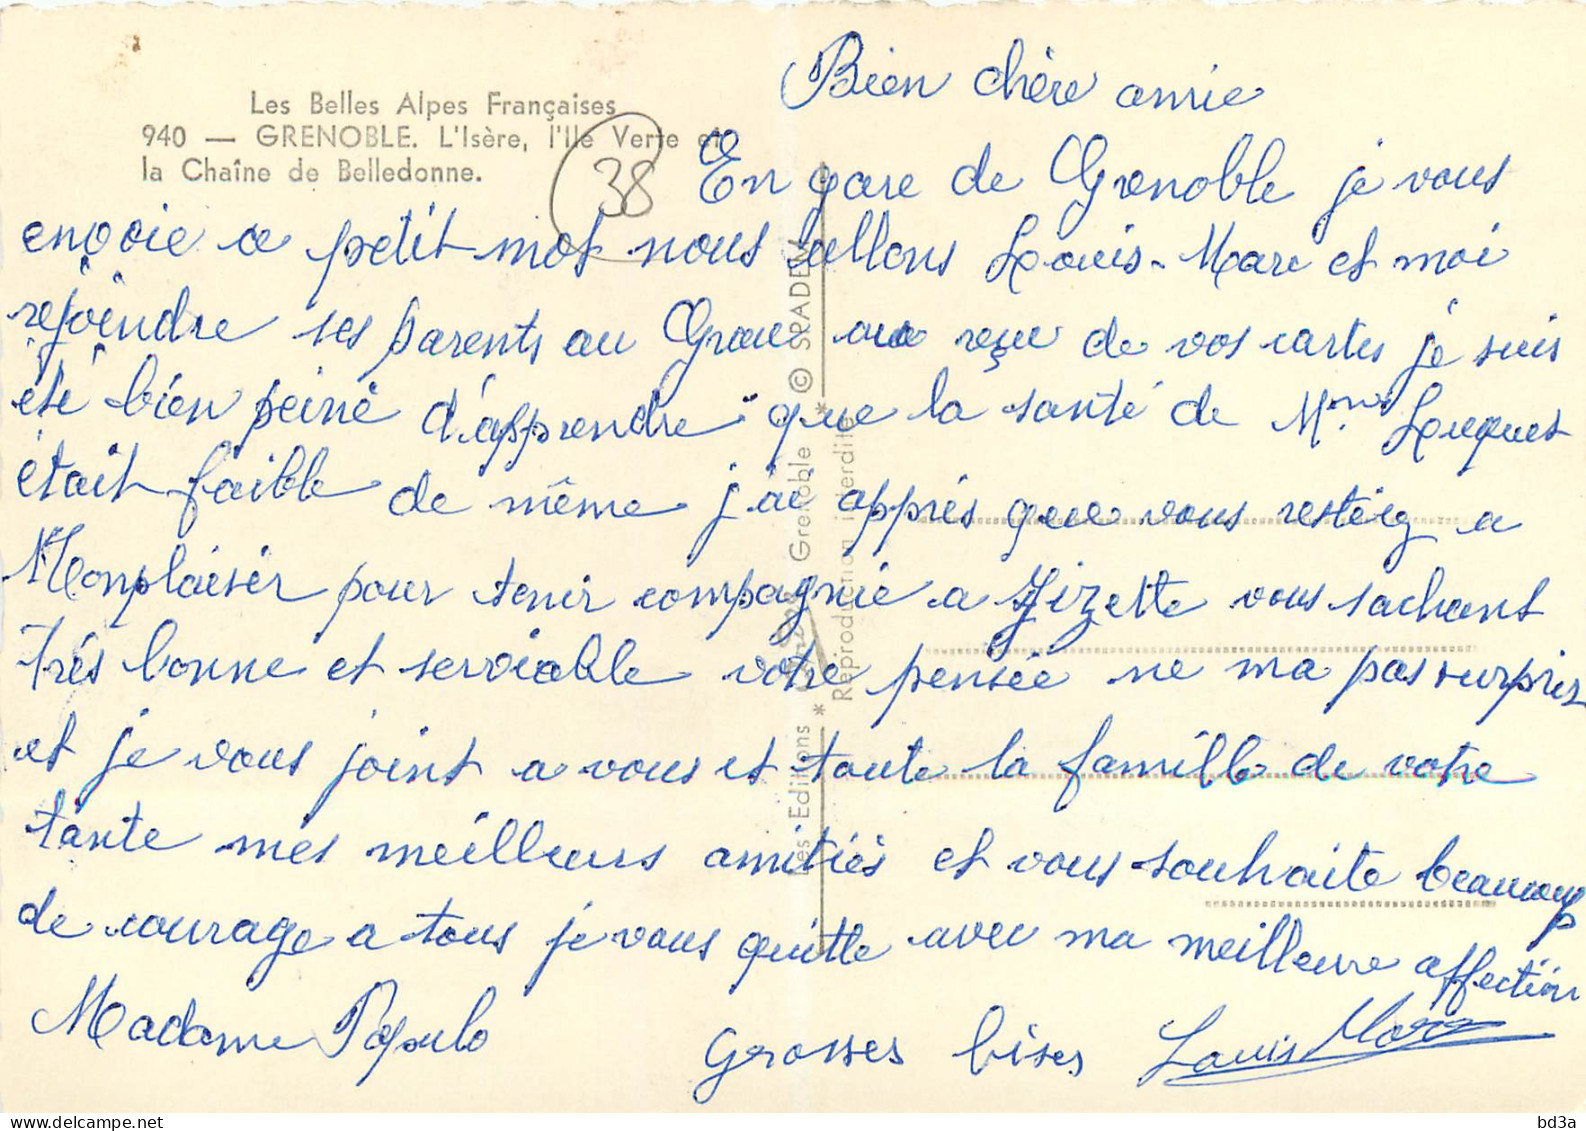 Les Belles Alpes Françaises
940 — GRENOBLE. L'Isère, l'Ile Verte et
la Chaîne de Belledonne.
38
Bien chère amie
En gare de Grenoble je vous
envoie ce petit mot nous allons Louis-Marc et moi
rejoindre ses parents au Grau reçu de vos cartes je suis
été bien peiné d'apprendre que la santé de Mme Luques
était faible de même j'ai apprés que vous restéiz a
Monplaisir pour tenir compagnie a Zizette vous sachant
trés bonne et serviable votre pensée ne ma pas surpris
et je vous joint a vous et toute la famille de votre
tante mes meilleurs amitiés et vous souhaite beaucoup
de courage a tous je vous quitte avec ma meilleure affection
Madame Papulo Grosses bises Louis Marc
Les Editions Grenoble © SPADEM
* Reproduction interdite *
bd3a